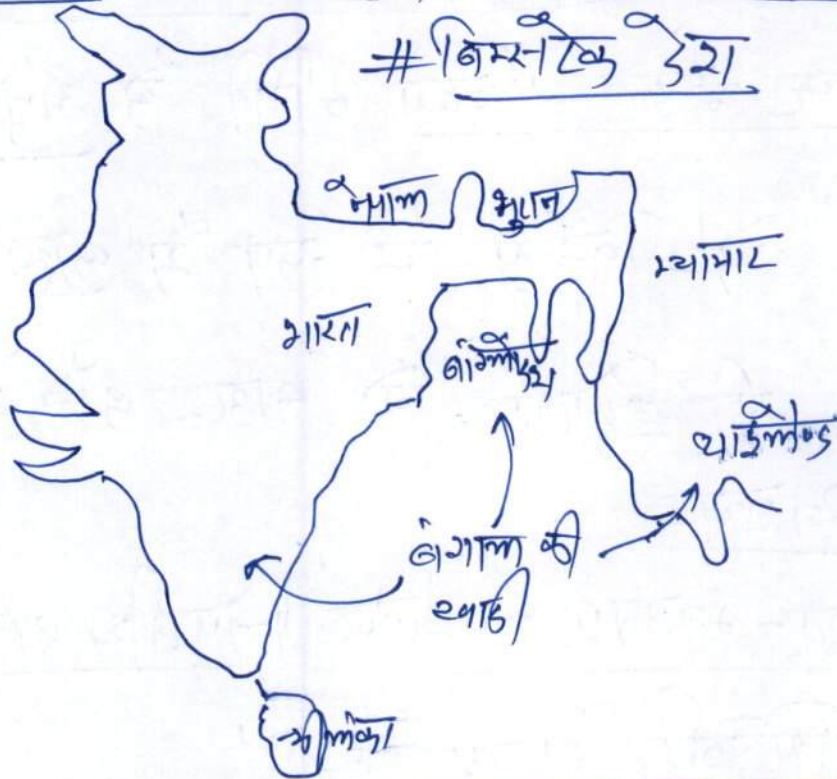 # बिम्सटेक देश
नेपाल
भुटान
म्यामार
भारत
बांग्लादेश
थाईलैण्ड
बंगाल की
खाड़ी
श्रीलंका